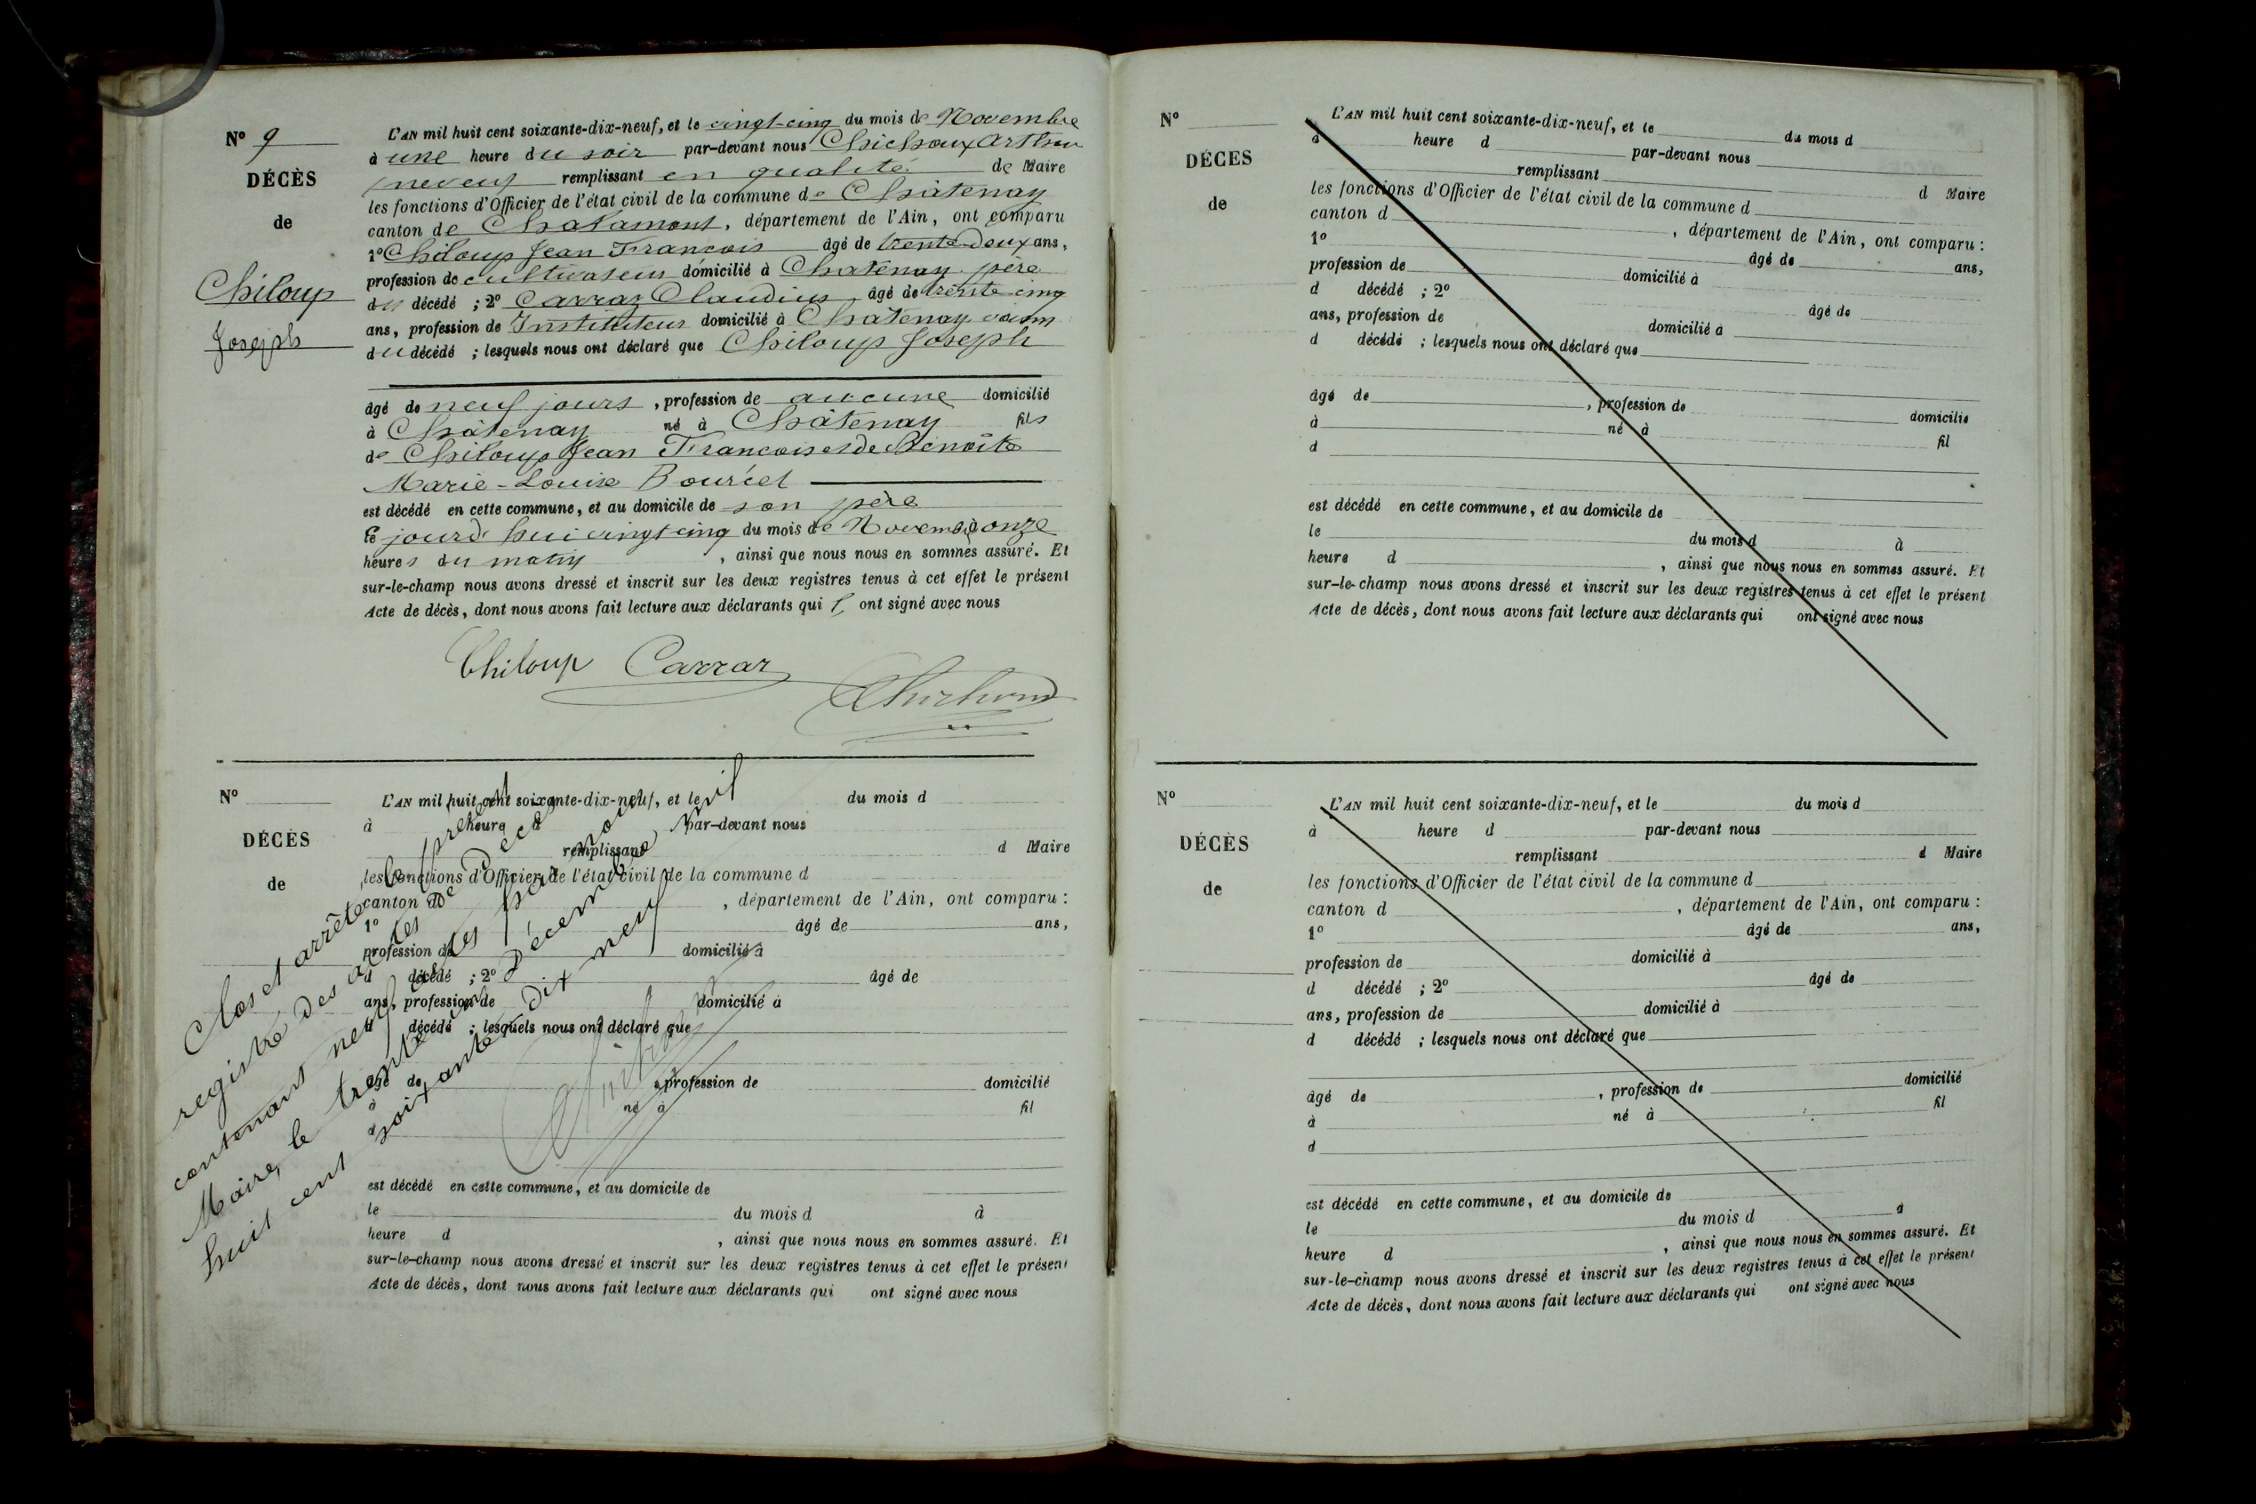 N° 9
DÉCÈS
de
Chiloup
Joseph
L'AN mil huit cent soixante-dix-neuf, et le vingt-cinq du mois de Novembre
à une heure du soir par-devant nous Arthur
(neveu) remplissant en qualité de Maire
les fonctions d'Officier de l'état civil de la commune de Châtenay
canton de Chalamont, département de l'Ain, ont comparu
1° Chiloup Jean François âgé de trente-deux ans,
profession de cultivateur domicilié à Chatenay père
du décédé ; 2° Carraz Claudius âgé de trente cinq
ans, profession de Instituteur domicilié à Chatenay voisin
du décédé ; lesquels nous ont déclaré que Chiloup Joseph
âgé de neuf jours, profession de aucune domicilié
à Châtenay né à Châtenay fils
de Chiloup Jean François et de Benoîte
Marie-Louise
est décédé en cette commune, et au domicile de son père
le jourd'hui vingt cinq du mois de Novembre à onze
heures du matin, ainsi que nous nous en sommes assuré. Et
sur-le-champ nous avons dressé et inscrit sur les deux registres tenus à cet effet le présent
Acte de décès, dont nous avons fait lecture aux déclarants qui ont signé avec nous
Chiloup Carraz
N°
DÉCÈS
de
L'AN mil huit cent soixante-dix-neuf, et le du mois d
à heure d par-devant nous
remplissant d Maire
les fonctions d'Officier de l'état civil de la commune d
canton d , département de l'Ain, ont comparu :
1° âgé de ans,
profession de domicilié à
d décédé ; 2° âgé de
ans, profession de domicilié à
d décédé ; lesquels nous ont déclaré que
âgé de , profession de domicilié
à né à fil
d
est décédé en cette commune, et au domicile de
le du mois d à
heure d , ainsi que nous nous en sommes assuré. Et
sur-le-champ nous avons dressé et inscrit sur les deux registres tenus à cet effet le présent
Acte de décès, dont nous avons fait lecture aux déclarants qui ont signé avec nous
Clos et arrêté le présent
registre des actes de Décès
contenant neuf actes par nous
Maire, le trente un Décembre mil
huit cent soixante dix neuf
N°
DÉCES
de
L'AN mil huit cent soixante-dix-neuf, et le du mois d
à heure d par-devant nous
remplissant d Maire
les fonctions d'Officier de l'état civil de la commune d
canton d , département de l'Ain, ont comparu :
1° âgé de ans,
profession de domicilié à
d décédé ; 2° âgé de
ans, profession de domicilié à
d décédé ; lesquels nous ont déclaré que
âgé de , profession de domicilié
à né à fil
d
est décédé en cette commune, et au domicile de
le du mois d à
heure d , ainsi que nous nous en sommes assuré. Et
sur-le-champ nous avons dressé et inscrit sur les deux registres tenus à cet effet le présent
Acte de décès, dont nous avons fait lecture aux déclarants qui ont signé avec nous
N°
DÉCÈS
de
L'AN mil huit cent soixante-dix-neuf, et le du mois d
à heure d par-devant nous
remplissant d Maire
les fonctions d'Officier de l'état civil de la commune d
canton d , département de l'Ain, ont comparu :
1° âgé de ans,
profession de domicilié à
d décédé ; 2° âgé de
ans, profession de domicilié à
d décédé ; lesquels nous ont déclaré que
âgé de , profession de domicilié
à né à fil
d
est décédé en cette commune, et au domicile de
le du mois d à
heure d , ainsi que nous nous en sommes assuré. Et
sur-le-champ nous avons dressé et inscrit sur les deux registres tenus à cet effet le présent
Acte de décès, dont nous avons fait lecture aux déclarants qui ont signé avec nous